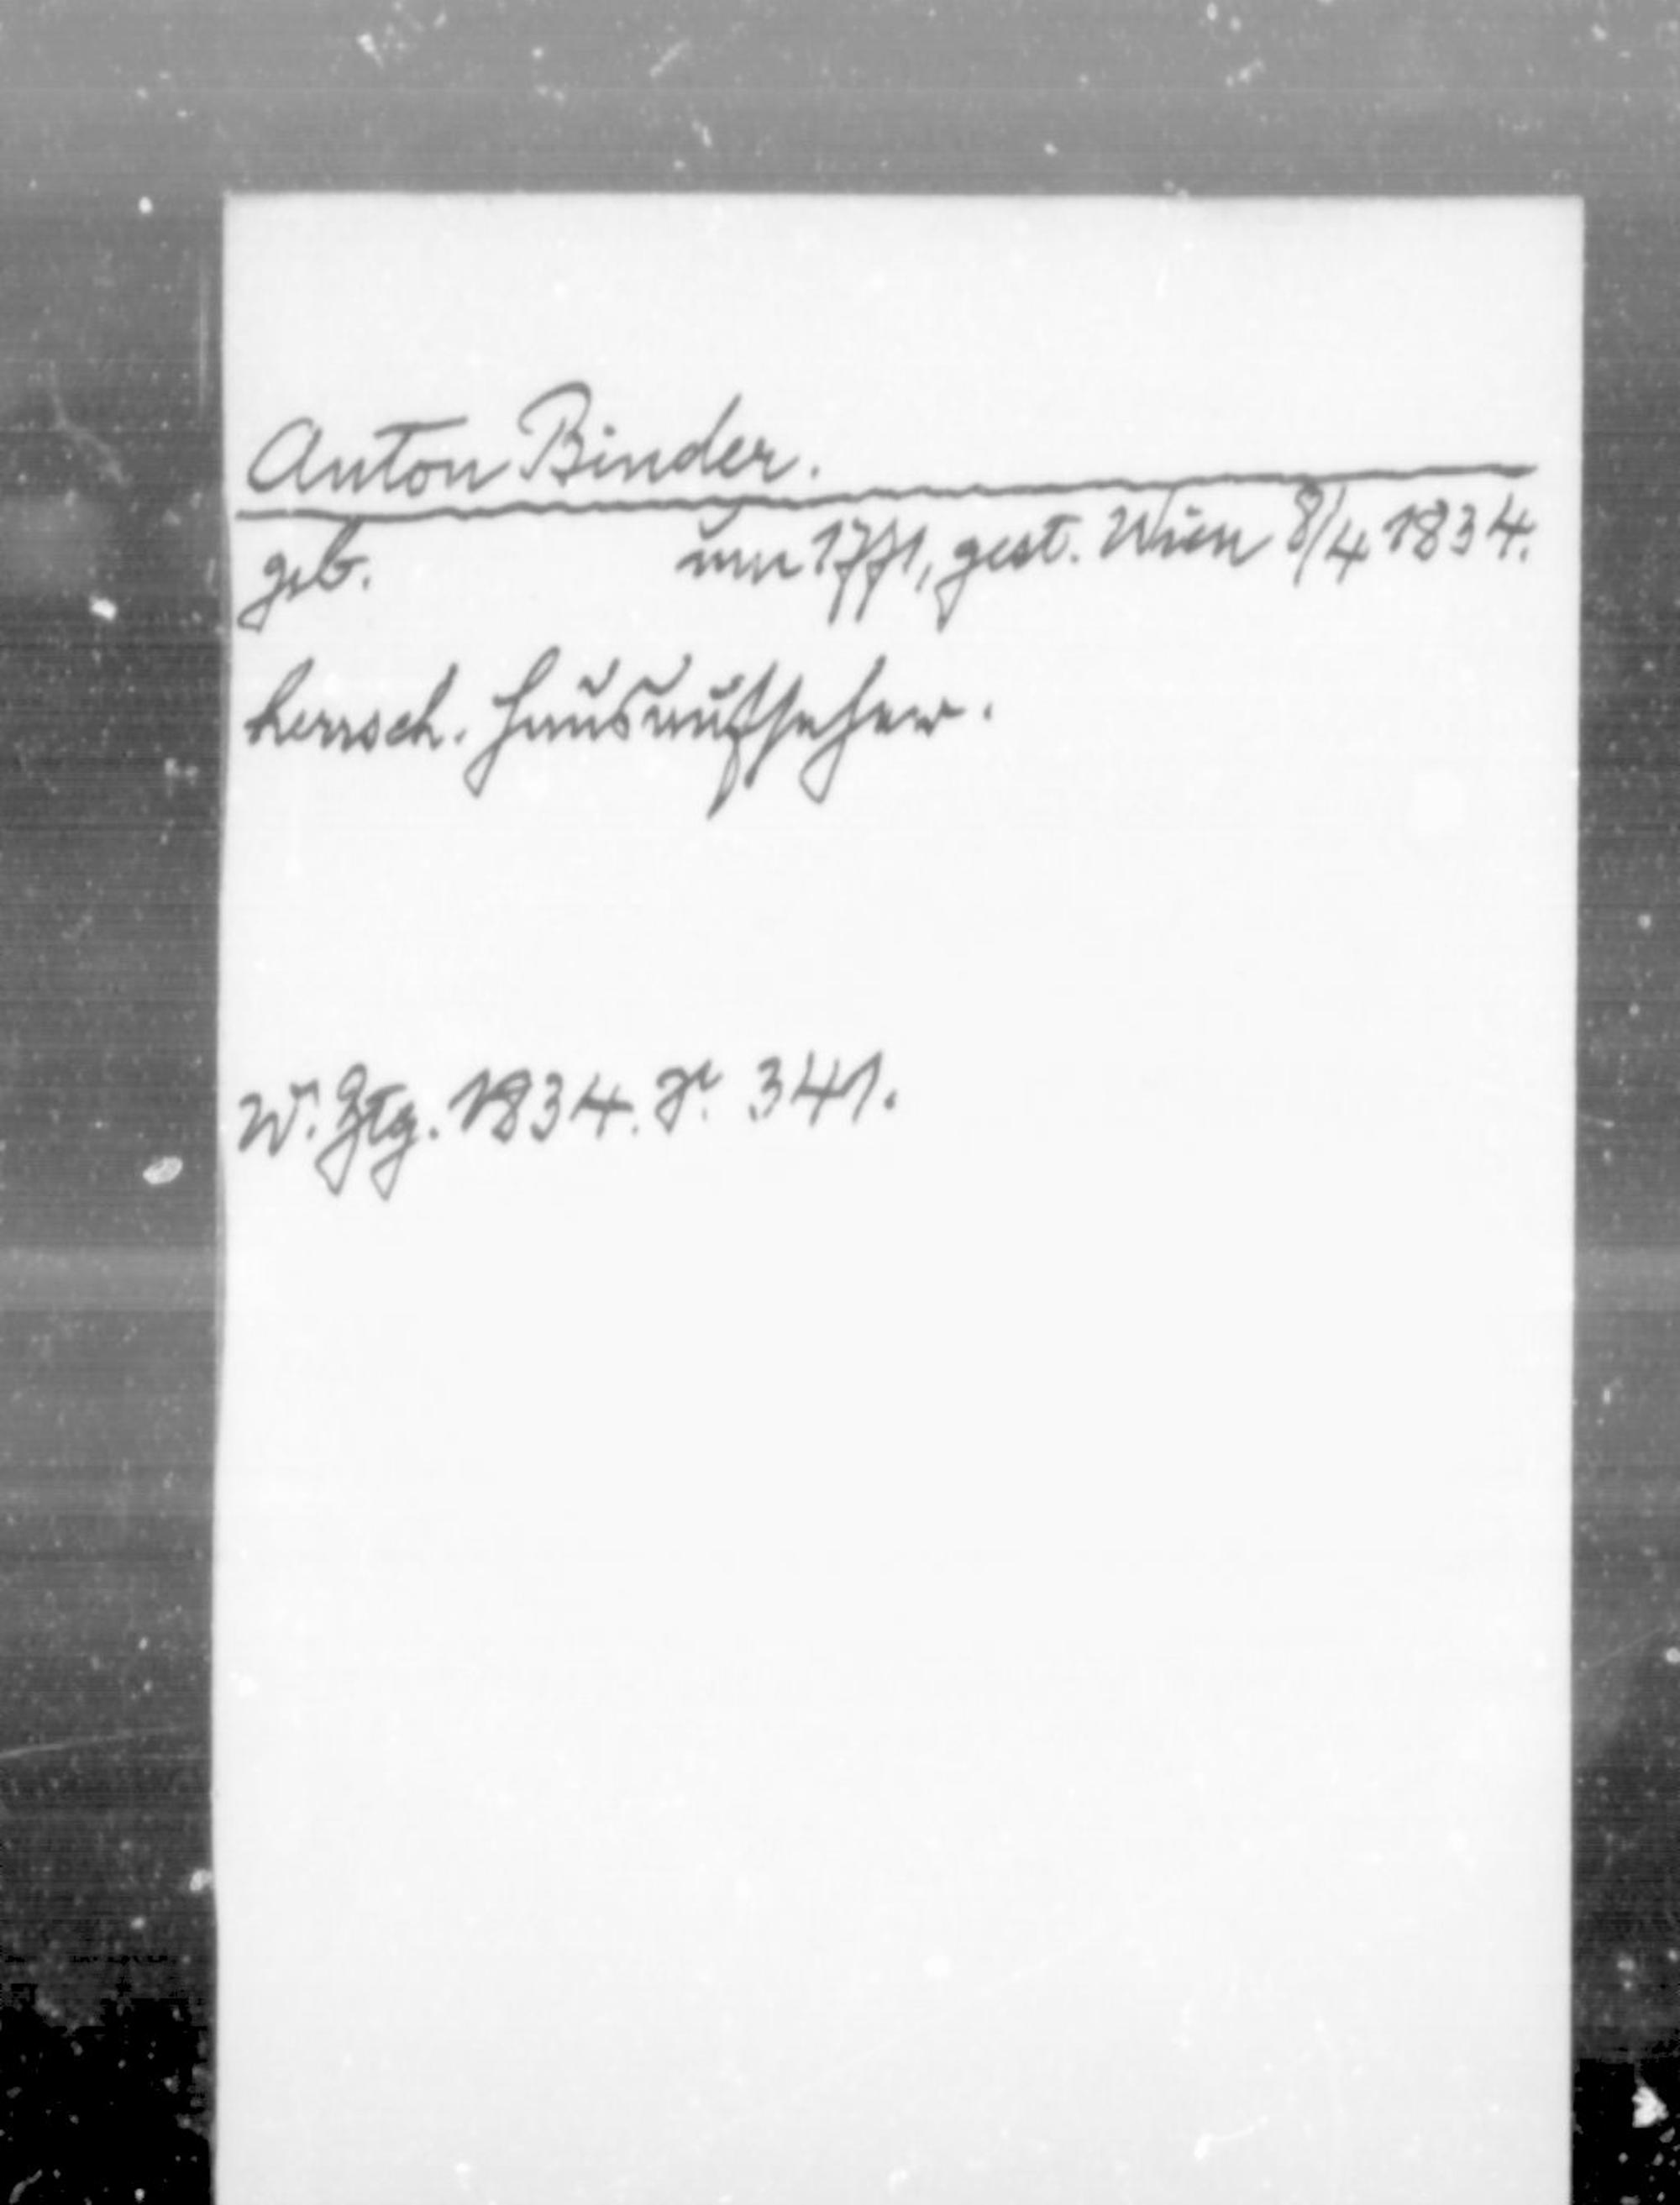 Anton Binder.
geb. um 1771, gest. Wien 8/4 1834.
herrsch. Hausaufseher.
W. Ztg. 1834. S. 341.